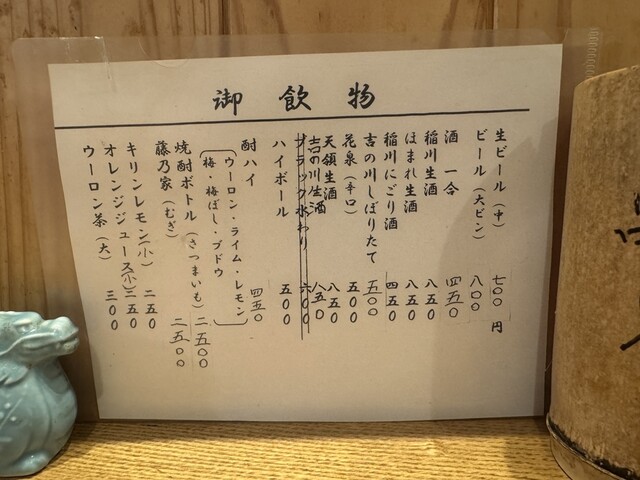 御飲物
生ビール（中） 七00円
ビール（大ビン） 八00
酒 一合 四五0
稲川生酒 八五0
ほまれ生酒 八五0
稲川にごり酒 四五0
吉の川しぼりたて 五00
花泉（辛口） 五00
天領生酒 八五0
吉の川生酒 八五0
ブラック水わり 六00
ハイボール 五00
酎ハイ 四五0
（ウーロン・ライム・レモン
梅・梅ぼし・ブドウ）
焼酎ボトル（さつまいも） 二五00
藤乃家（むぎ） 二五00
キリンレモン（小） 二五0
オレンジジュース（小） 三五0
ウーロン茶（大） 三00